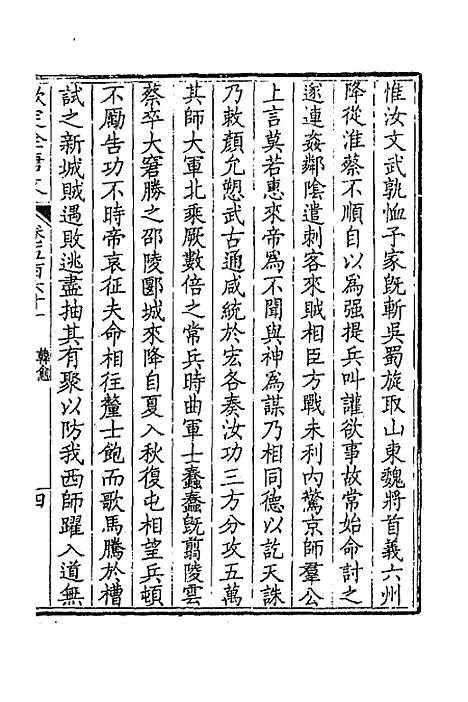 惟汝文武孰恤予家旣斬吳蜀旋取山東魏將首義六州
降從淮蔡不順自以為强提兵叫讙欲事故常始命討之
遂連姦鄰陰遣刺客來賊相臣方戰未利內驚京師羣公
上言莫若惠來帝為不聞與神為謀乃相同德以訖天誅
乃敕顏允愬武古通咸統於宏各奏汝功三方分攻五萬
其師大軍北乘厥數倍之常兵時曲軍士蠢蠢旣翦陵雲
蔡卒大窘勝之邵陵郾城來降自夏入秋復屯相望兵頓
不勵告功不時帝哀征夫命相往釐士飽而歌馬騰於槽
試之新城賊遇敗逃盡抽其有聚以防我西師躍入道無
欽定全唐文 卷五百六十一 韓愈 四